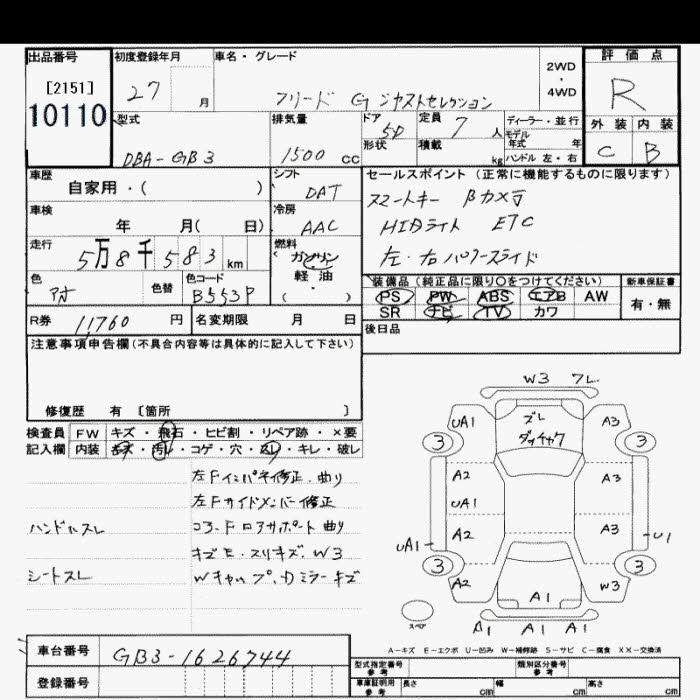 出品番号
[2151]
10110
初度登録年月
27 月
車名・グレード
フリード G ジャストセレクション
2WD
・
4WD
評価点
R
外装 内装
C B
型式
DBA-GB3
排気量
1500 cc
ドア
5D
形状
定員
7 人
積載
kg
ディーラー・並行
モデル
年式 年
ハンドル 左・右
車歴
自家用・( )
シフト
DAT
車検
年 月( 日)
冷房
AAC
走行
5万8千583km
燃料
ガソリン
軽油
( )
色
アオ
色替
色コード
B553P
セールスポイント(正常に機能するものに限ります)
スマートキー Bカメラ
HIDライト ETC
左・右パワースライド
装備品(純正品に限り○をつけてください)
PS PW ABS エアB AW
SR ナビ TV カワ
新車保証書
有・無
R券 11760 円
名変期限 月 日
後日品
注意事項申告欄(不具合内容等は具体的に記入して下さい)
修復歴 有 [箇所 ]
検査員
記入欄
FW キズ・飛石・ヒビ割・リペア跡・×要
内装 キズ・汚レ・コゲ・穴・スレ・キレ・破レ
左Fインパネ修正、曲り
左Fサイドメンバー修正
コアF ロアサポート曲り
キズE・スリキズ、W3
Wキャップ、カミラーキズ
ハンドルスレ
シートスレ
W3 フレ
UA1 ズレ A3
ダッチャク
3 3
A2 A3
UA1
A2 A3
UA1 U1
3 3
A2 A1 W3
スペア
B1 A1 A1
A-キズ E-エクボ U-凹み W-補修跡 S-サビ C-腐食 XX-交換済
車台番号 GB3-1626744
登録番号
型式指定番号
参考
類別区分番号
参考
車庫証明用
参考
長さ cm 幅 cm 高さ cm